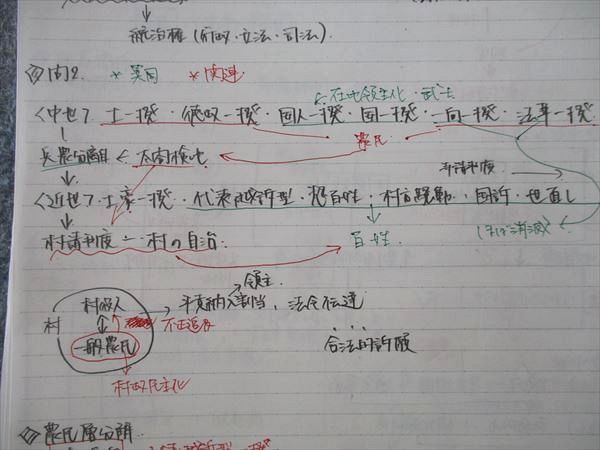 統治権(行政・立法・司法).
問2. *異同 *関連
在地領主化・武士
<中世> 土一揆・徳政一揆・国人一揆・国一揆・一向一揆・法華一揆
農民
兵農分離 ← 太閤検地
寺請制度
<近世> 土豪一揆・代表越訴型・惣百姓・村方騒動・国訴・世直し
村請制度=村の自治.
百姓.
ほぼ消滅
領主.
村役人 年貢納入割当, 法令伝達
村 不正追及
一般農民 合法的訴願
村政民主化
農民層分解